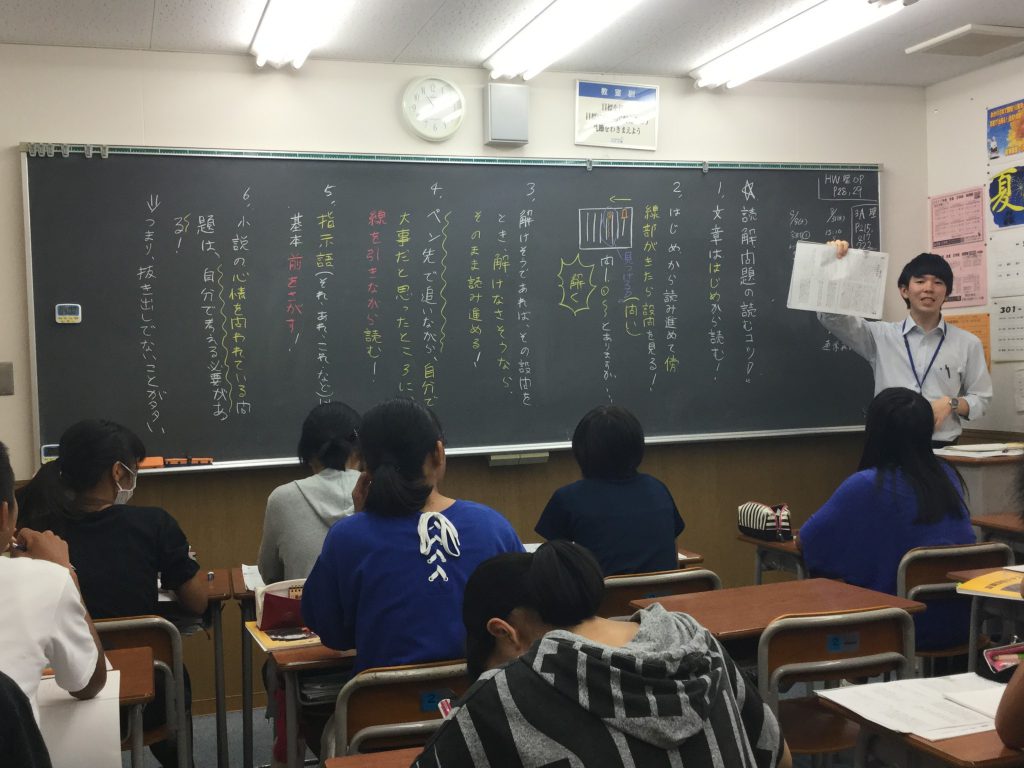 教室訓
礼節をわきまえよう
HW 壁UP
P28,29
☆読解問題の読むコツ①
1. 文章ははじめから読む！
2. はじめから読み進めて傍
線部がきたら設問を見る！
見つける(向い)
問一 ①〜とありますが、
解く
3. 解けそうであれば、その設問を
とき、解けなさそうなら、
そのまま読み進める！
4. ペン先で追いながら、自分で
大事だと思ったところに
線を引きながら読む！
5. 指示語(それ、あれ、これ、など)は
基本前をさがす！
6. 小説の心情を問われている問
題は、自分で考える必要があ
る！
⇒つまり、抜き出しでないことが多い
夏
301